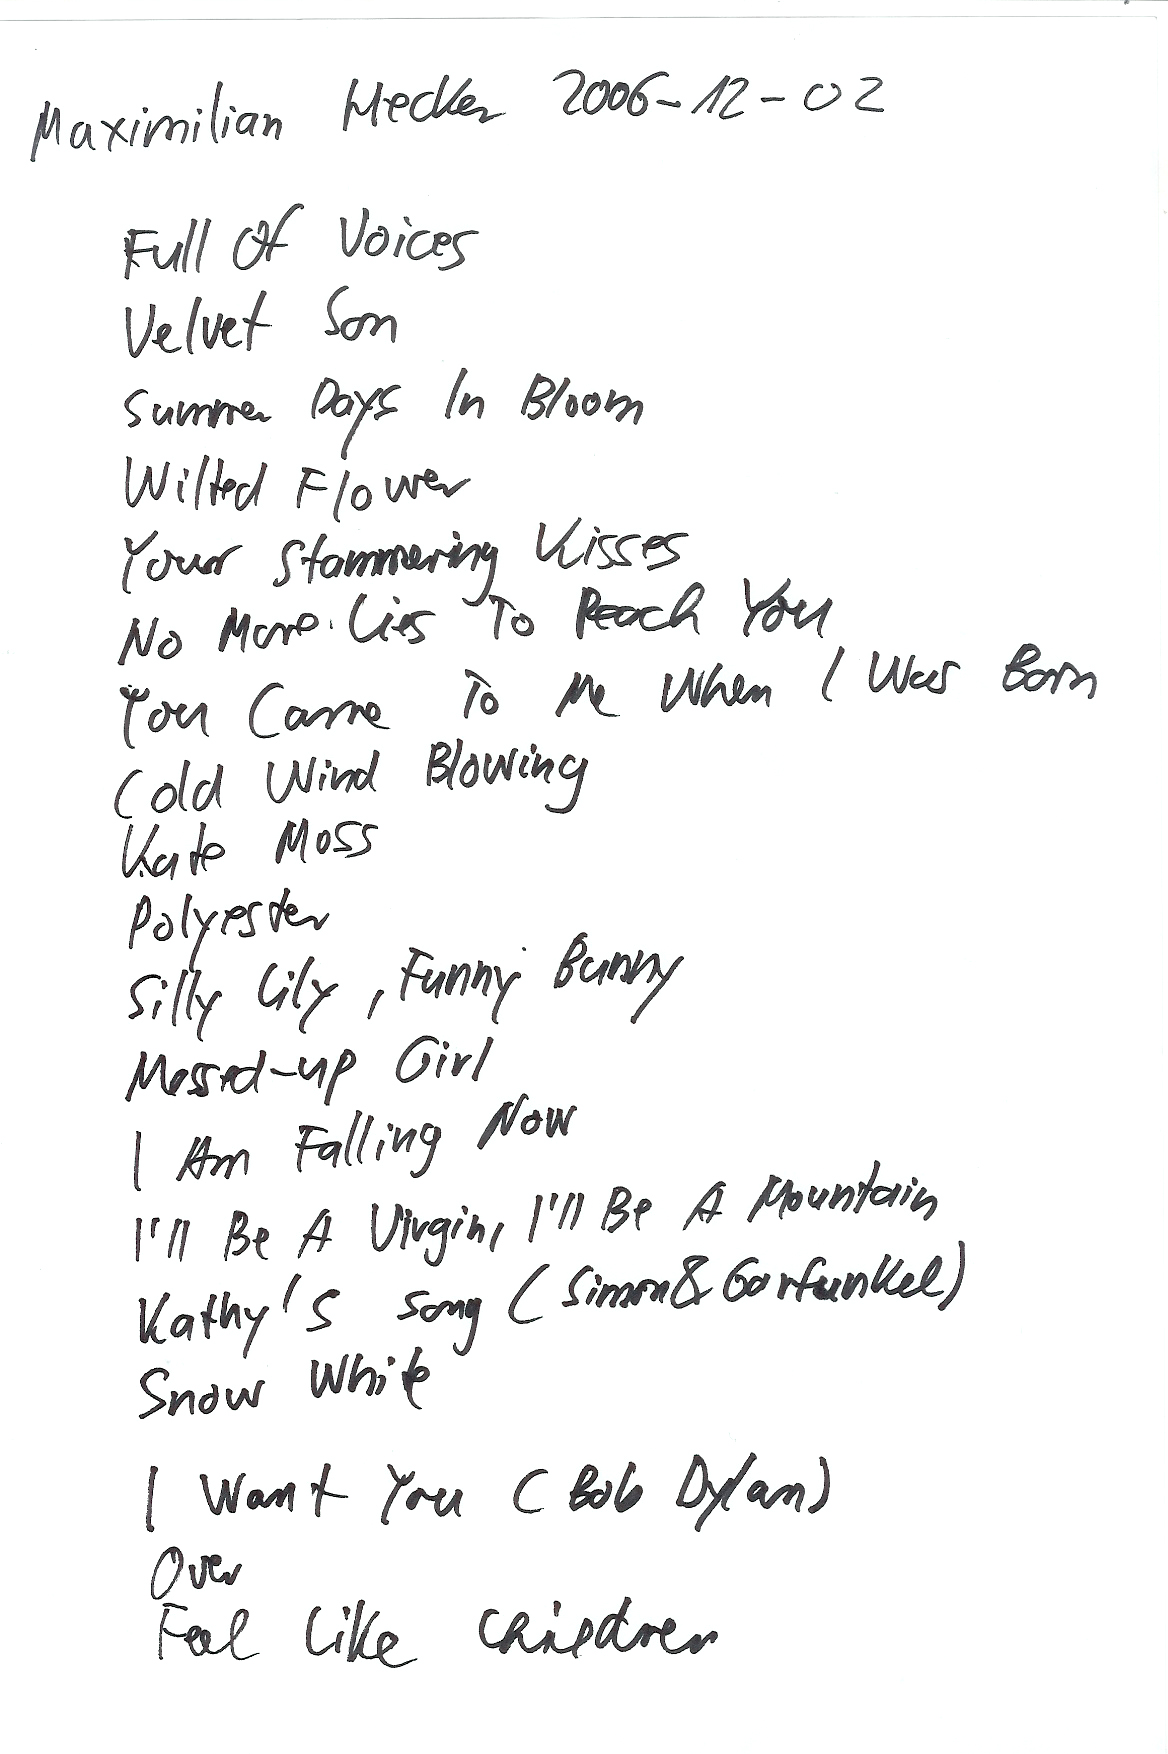 Maximilian Hecker 2006-12-02
Full Of Voices
Velvet Son
Summer Days In Bloom
Wilted Flower
Your Stammering Kisses
No More Lies To Reach You
You Came To Me When I Was Born
Cold Wind Blowing
Kate Moss
Polyester
Silly Lily, Funny Bunny
Messed-up Girl
I Am Falling Now
I'll Be A Virgin, I'll Be A Mountain
Kathy's song (Simon & Garfunkel)
Snow White
I Want You (Bob Dylan)
Over
Feel Like Children